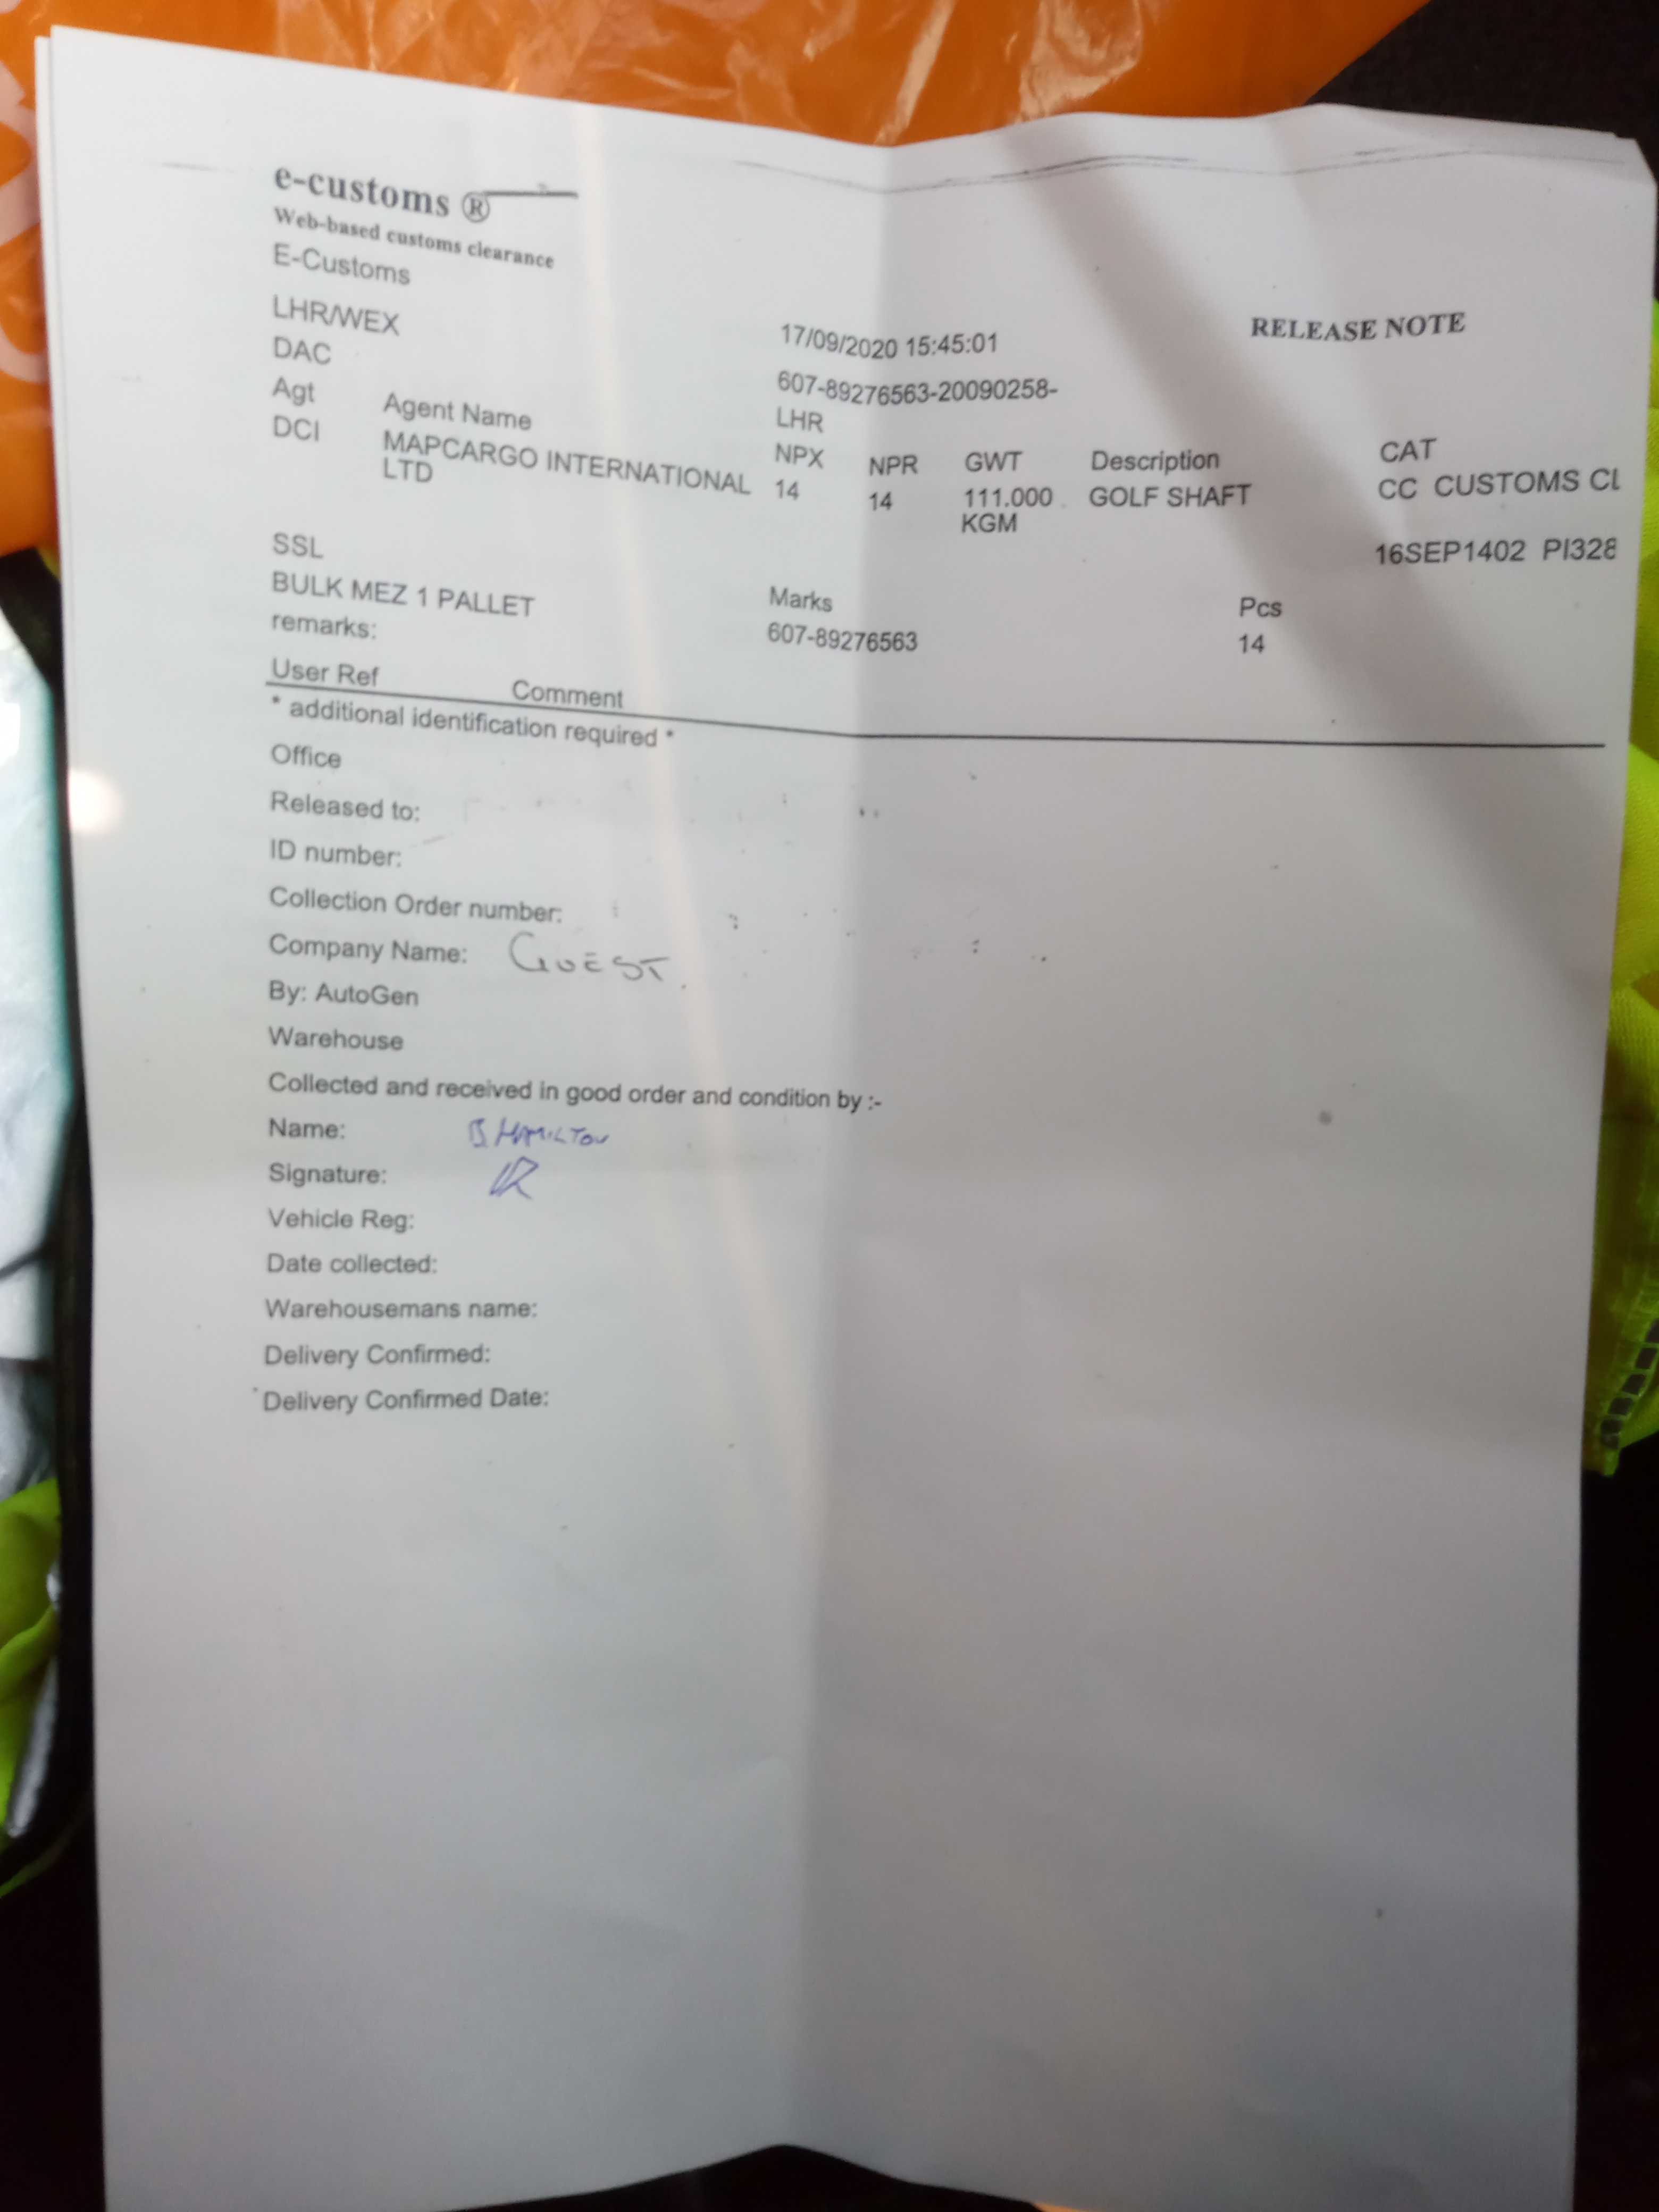 e-customs ®
Web-based customs clearance
E-Customs
RELEASE NOTE
LHR/WEX 17/09/2020 15:45:01
DAC 607-89276563-20090258-
LHR
Agt Agent Name NPX NPR GWT Description CAT
DCI MAPCARGO INTERNATIONAL LTD 14 14 111.000 KGM GOLF SHAFT CC CUSTOMS CL
16SEP1402 PI328
SSL Marks Pcs
BULK MEZ 1 PALLET 607-89276563 14
remarks:
User Ref Comment
* additional identification required *
Office
Released to:
ID number:
Collection Order number:
Company Name: GUEST.
By: AutoGen
Warehouse
Collected and received in good order and condition by :-
Name: B HAMILTON
Signature:
Vehicle Reg:
Date collected:
Warehousemans name:
Delivery Confirmed:
Delivery Confirmed Date: